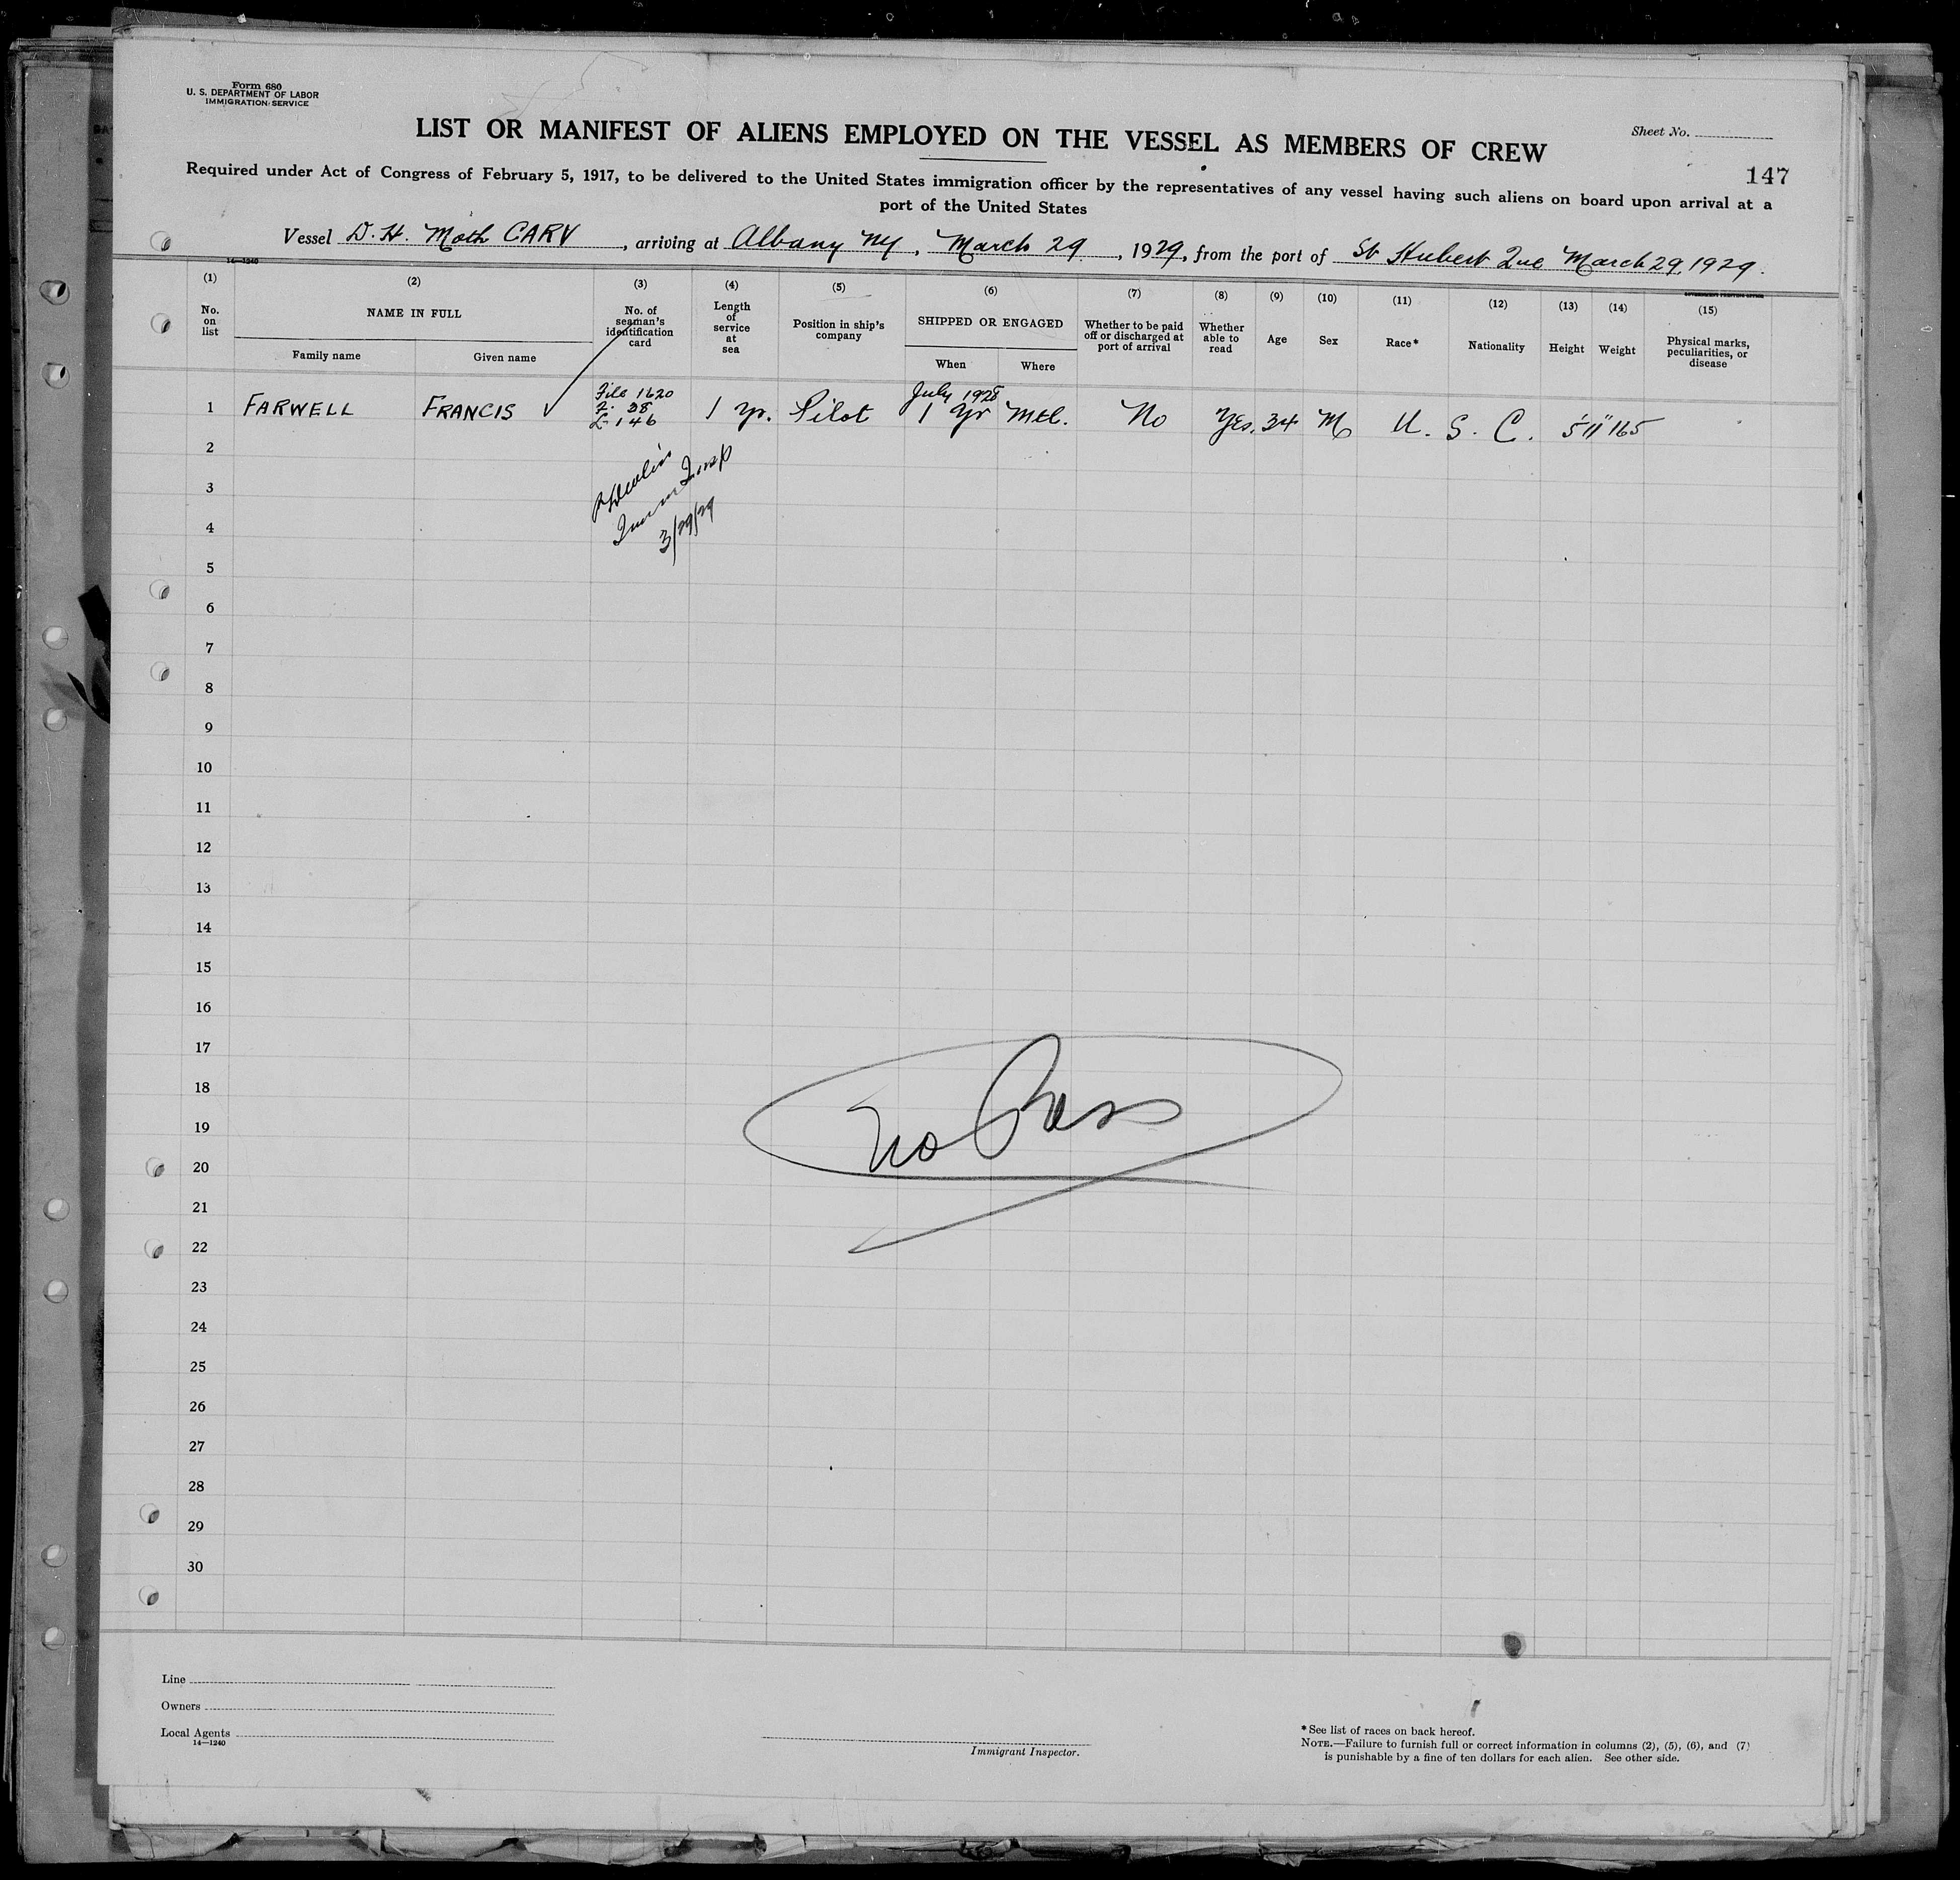 Form 680
U. S. DEPARTMENT OF LABOR
IMMIGRATION SERVICE
LIST OR MANIFEST OF ALIENS EMPLOYED ON THE VESSEL AS MEMBERS OF CREW
Sheet No.
147
Required under Act of Congress of February 5, 1917, to be delivered to the United States immigration officer by the representatives of any vessel having such aliens on board upon arrival at a
port of the United States
Vessel D. H. Moth CARV, arriving at Albany NY, March 29, 1929, from the port of St Hubert Que March 29, 1929.
14—1240
GOVERNMENT PRINTING OFFICE
(1) (2) (3) (4) (5) (6) (7) (8) (9) (10) (11) (12) (13) (14) (15)
No. on list
NAME IN FULL
Family name
Given name
No. of seaman's identification card
Length of service at sea
Position in ship's company
SHIPPED OR ENGAGED
When
Where
Whether to be paid off or discharged at port of arrival
Whether able to read
Age
Sex
Race*
Nationality
Height
Weight
Physical marks, peculiarities, or disease
1 FARWELL FRANCIS ✓ File 1620 F. 38 L-146 1 yr. Pilot July 1928 1 yr Mtl. No Yes. 34 M U. S. C. 5'11" 165
2
3
Immn Insp
3/29/29
4
5
6
7
8
9
10
11
12
13
14
15
16
17
18
No Pass
19
20
21
22
23
24
25
26
27
28
29
30
Line
Owners
Local Agents
14—1240
Immigrant Inspector.
* See list of races on back hereof.
NOTE.—Failure to furnish full or correct information in columns (2), (5), (6), and (7)
is punishable by a fine of ten dollars for each alien. See other side.